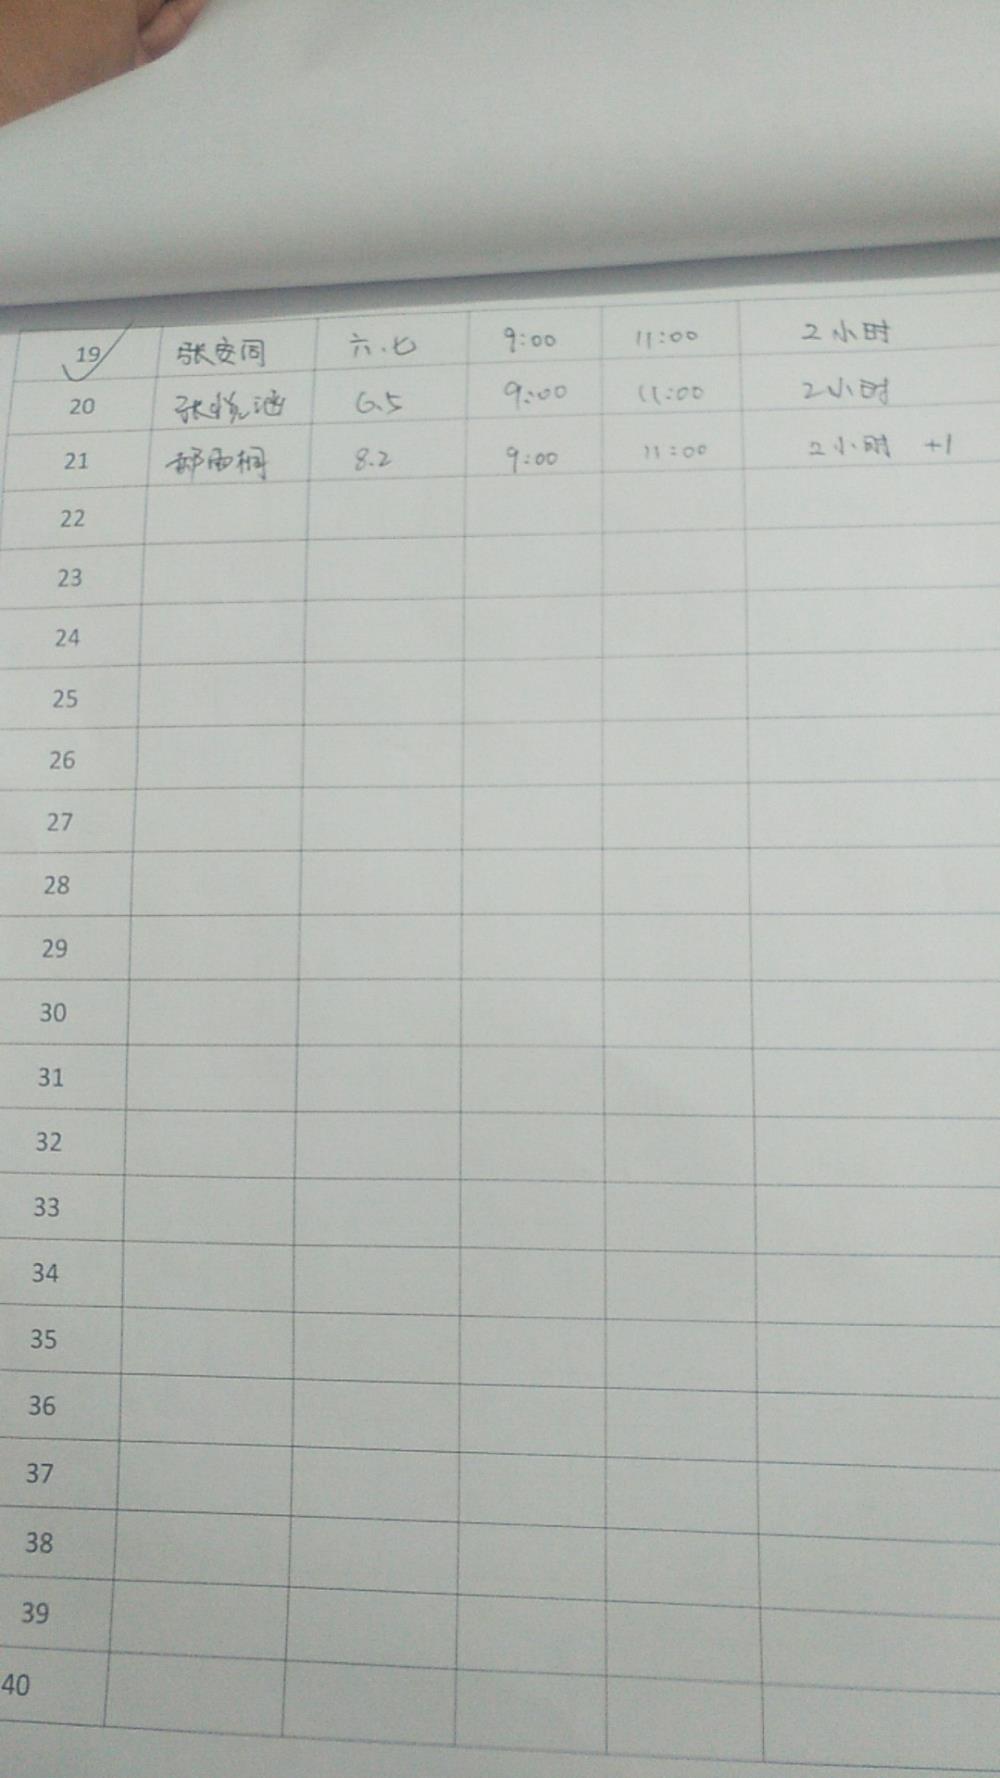 19 张安同 六.七 9:00 11:00 2小时
20 张悦涵 6.5 9:00 11:00 2小时
21 郝雨桐 8.2 9:00 11:00 2小时 +1
22
23
24
25
26
27
28
29
30
31
32
33
34
35
36
37
38
39
40